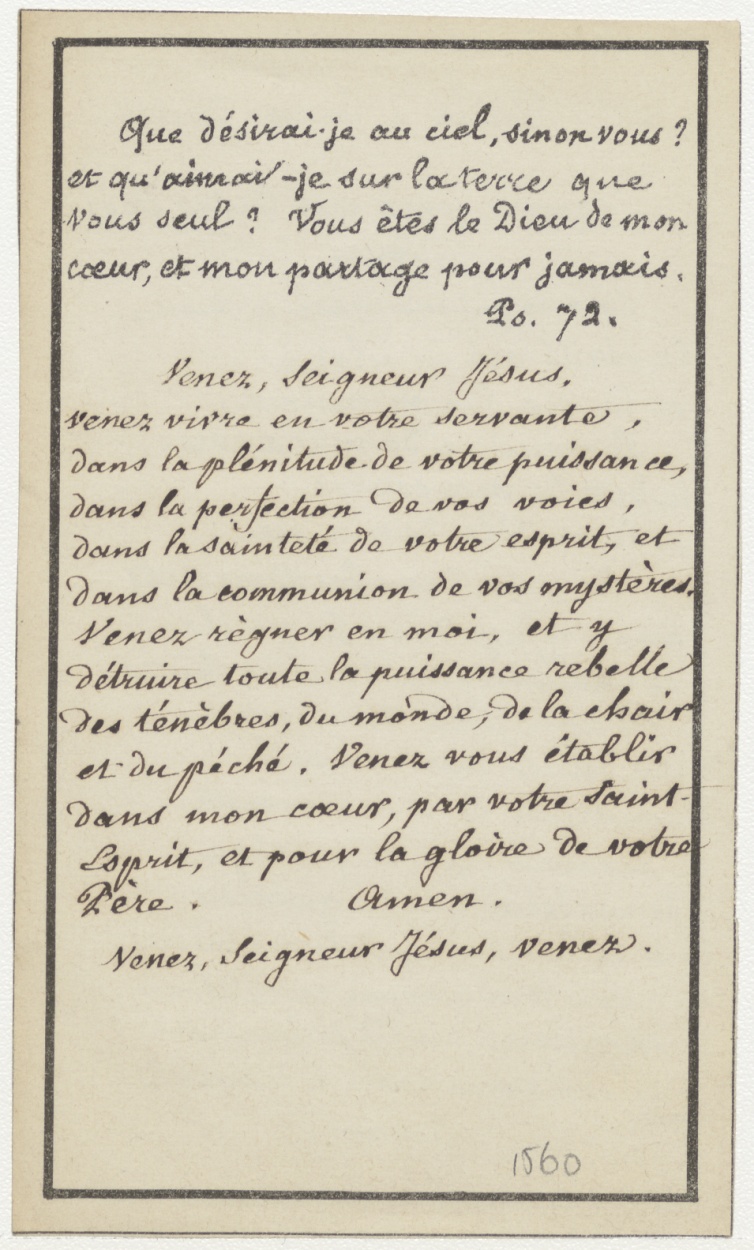 Que désirai-je au ciel, sinon vous ?
et qu'aimai-je sur la terre que
vous seul ? Vous êtes le Dieu de mon
cœur, et mon partage pour jamais.
Ps. 72.
Venez, Seigneur Jésus,
venez vivre en votre servante,
dans la plénitude de votre puissance,
dans la perfection de vos voies,
dans la sainteté de votre esprit, et
dans la communion de vos mystères.
Venez règner en moi, et y
détruire toute la puissance rebelle
des ténèbres, du monde, de la chair
et du péché. Venez vous établir
dans mon cœur, par votre Saint-
Esprit, et pour la gloire de votre
Père. Amen.
Venez, Seigneur Jésus, venez.
1560